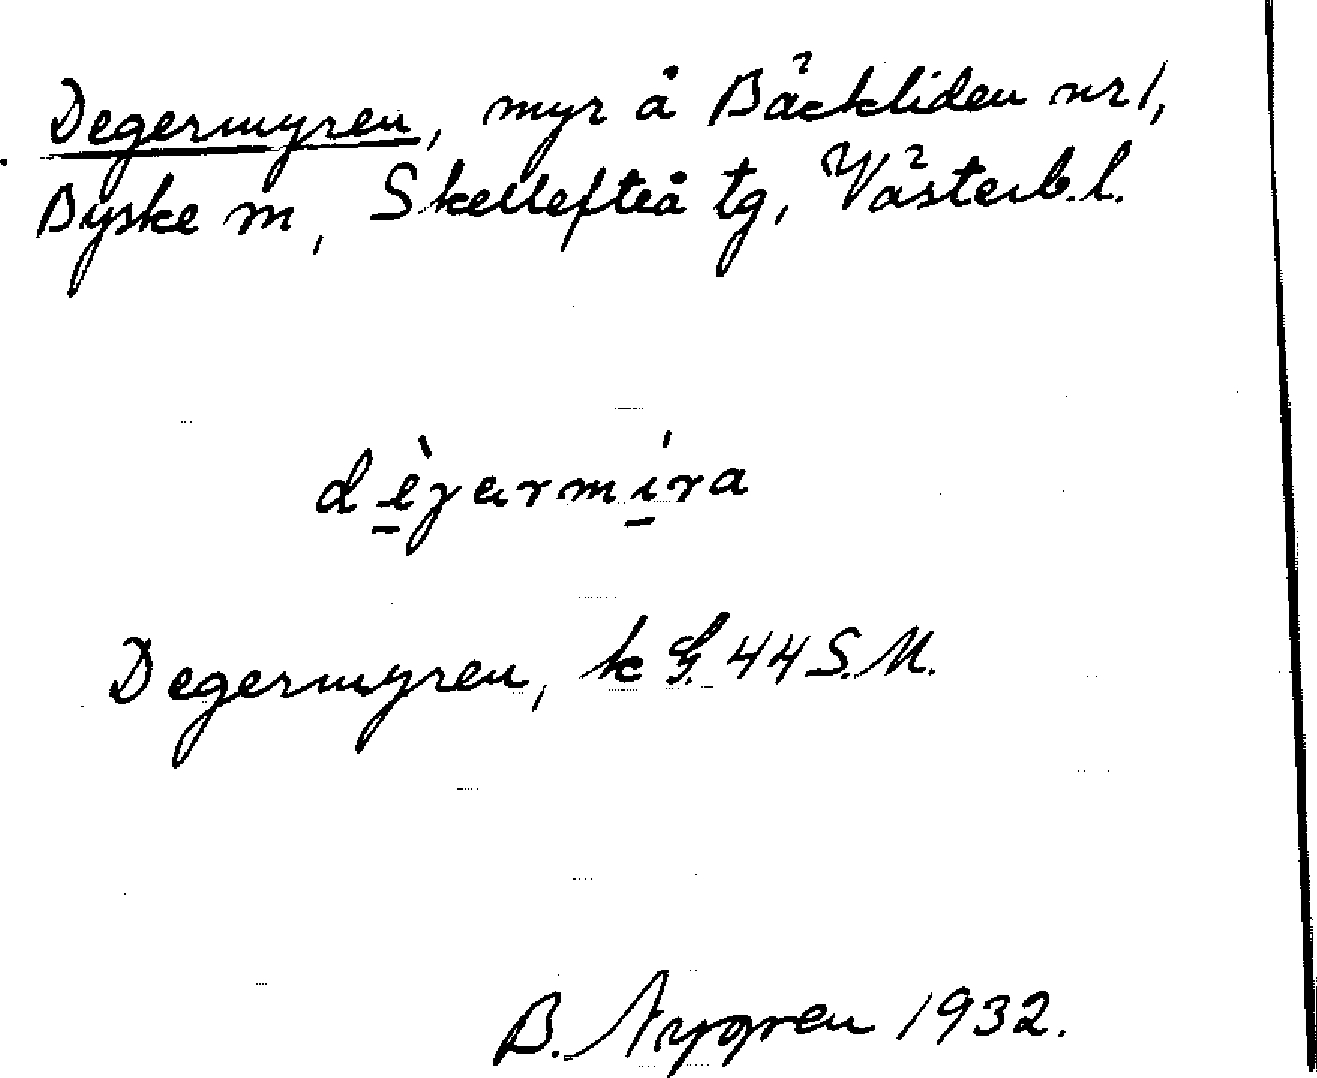 Degermyren, myr å Bäckliden nr 1,
Byske sn, Skellefteå tg, Västerb. l.
dègarmíra
Degermyren, k G. 44 S.M.
B. Nygren 1932.